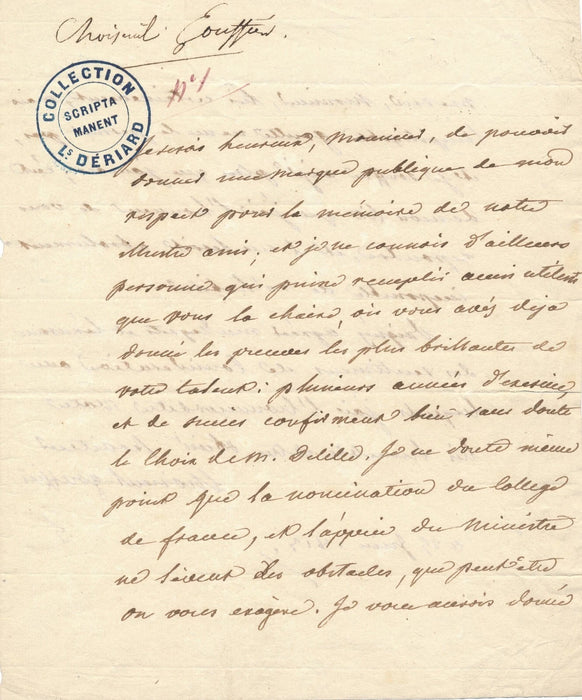 Choiseul Gouffier.
COLLECTION
SCRIPTA
MANENT
Ls DÉRIARD
Je serois heureux, Monsieur, de pouvoir
donner une marque publique de mon
respect pour la mémoire de notre
illustre ami, et je ne connois d'ailleurs
personne qui puisse remplir aussi utilement
que vous la chaire, où vous avés déja
donné les preuves les plus brillantes de
votre talent; plusieurs années d'exercice,
et de succes confirment bien sans doute
le Choix de M. Delille. Je ne doute même
point que la nomination du College
de france, et l'appui du Ministre
ne lèvent des obstacles, que peut être
on vous exagère. Je vous aurois donné